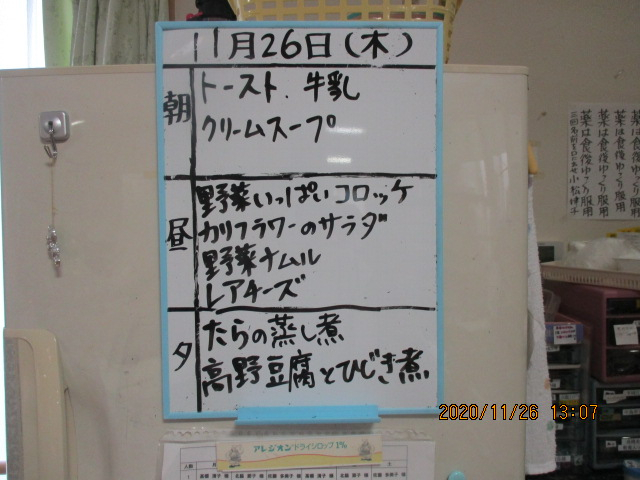 11月26日(木)
朝
トースト. 牛乳
クリームスープ
昼
野菜いっぱいコロッケ
カリフラワーのサラダ
野菜ナムル
レアチーズ
夕
たらの蒸し煮
高野豆腐とひじき煮
薬は食後ゆっくり服用
薬は食後ゆっくり服用
薬は食後ゆっくり服用
アレジオンドライシロップ1%
2020/11/26 13:07